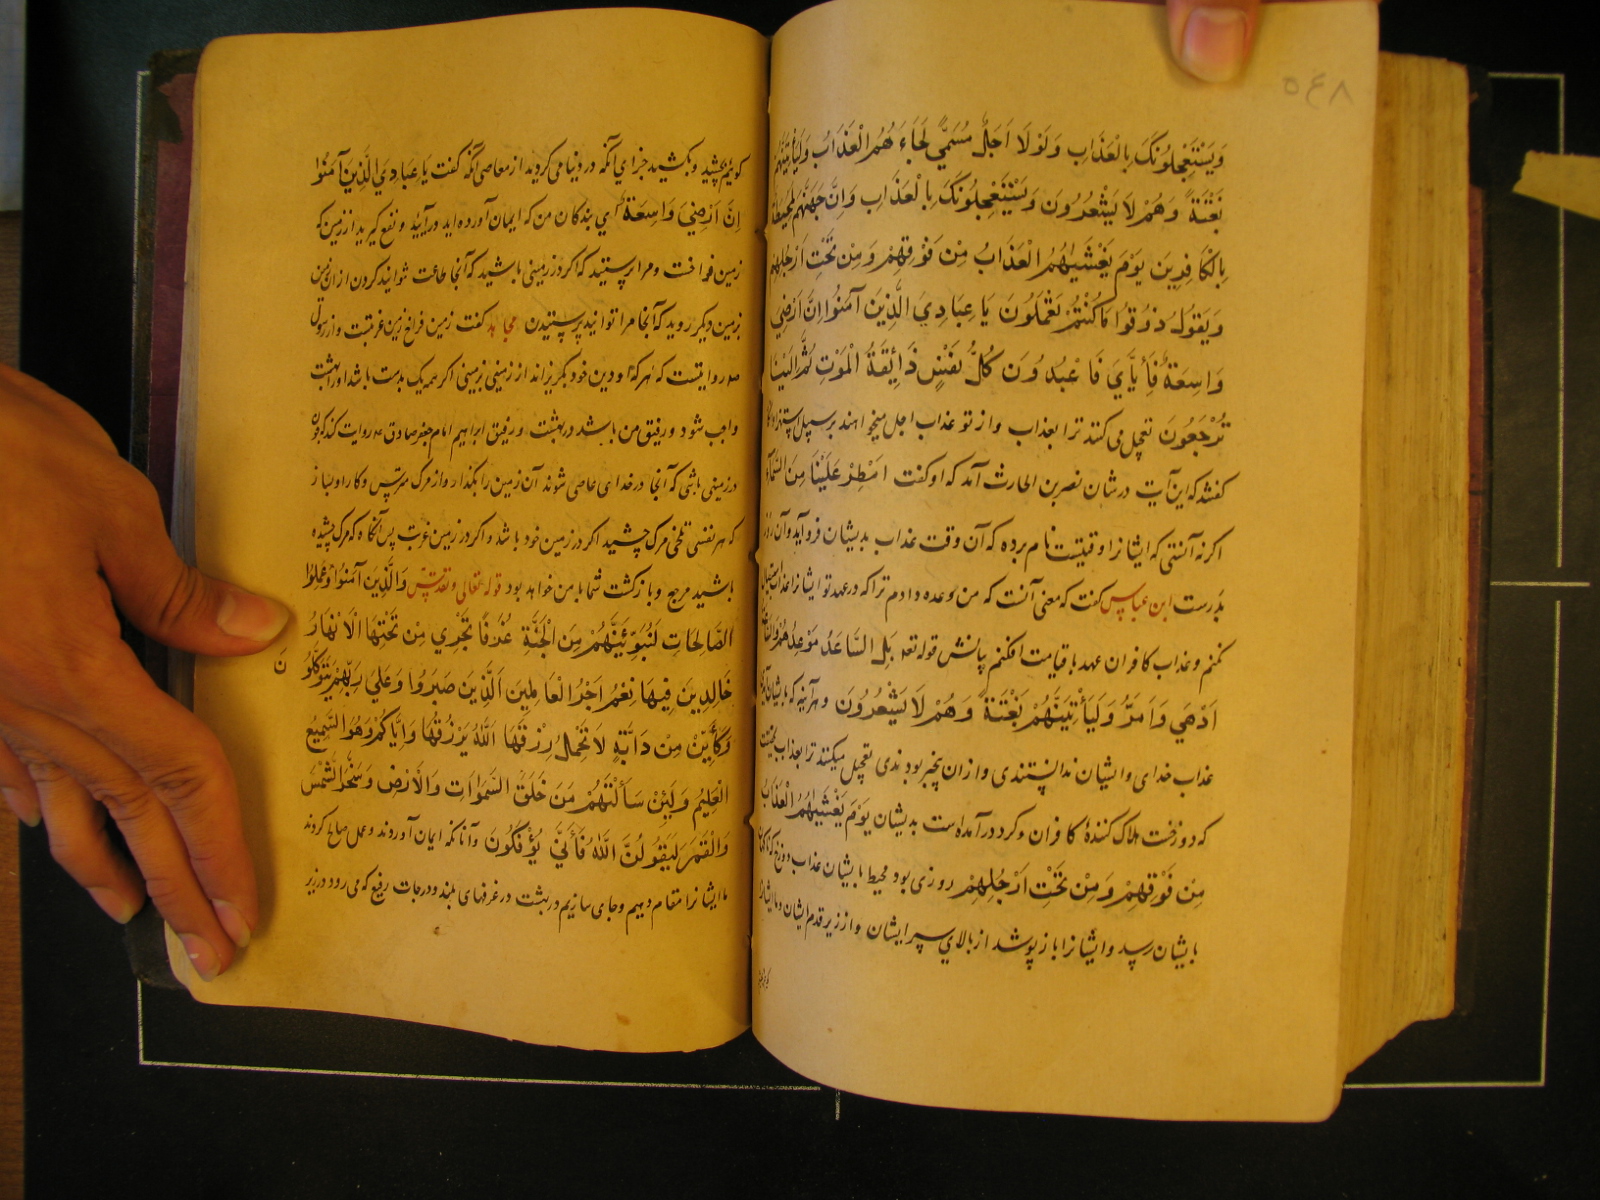 ۵۴۸
وَيَسْتَعْجِلُونَكَ بِالْعَذَابِ وَلَوْلَا اَجَلٌ مُسَمًّي لَجَاءَهُمُ الْعَذَابُ وَلَيَأْتِيَنَّهُمْ
بَغْتَةً وَهُمْ لَا يَشْعُرُونَ وَيَسْتَعْجِلُونَكَ بِالْعَذَابِ وَاِنَّ جَهَنَّمَ لَمُحِيطَةٌ
بِالْكَافِرِينَ يَوْمَ يَغْشَيهُمُ الْعَذَابُ مِنْ فَوْقِهِمْ وَمِنْ تَحْتِ اَرْجُلِهِمْ
وَيَقُولُ ذُوقُوا مَا كُنْتُمْ تَعْمَلُونَ يَا عِبَادِيَ الَّذِينَ آمَنُوا اِنَّ اَرْضِي
وَاسِعَةٌ فَاِيَّايَ فَاعْبُدُونَ كُلُّ نَفْسٍ ذَائِقَةُ الْمَوْتِ ثُمَّ اِلَيْنَا
تُرْجَعُونَ تعجیل می کنند ترا بعذاب و از تو عذاب اجل میخواهند بر سبیل استهزا
کفتند که این آیت در شان نضر بن الحارث آمد که او کفت امْطِرْ عَلَيْنَا مِنَ السَّمَاءِ
اکر نه آنستی که ایشانرا وقتیست نام برده که آن وقت عذاب بدیشان فرو آید و آن روز
بدرست ابن عباس کفت که معنی آنست که من وعده دادم ترا که در عهد تو ایشانرا عذاب
نکنم و عذاب کافران عهد با قیامت افکنم بیانش قوله تعه بَلِ السَّاعَةُ مَوْعِدُهُمْ وَالسَّاعَةُ
اَدْهَي وَاَمَرُّ وَلَيَأْتِيَنَّهُمْ بَغْتَةً وَهُمْ لَا يَشْعُرُونَ و هر آینه که بدیشان آید
عذاب خدای و ایشان ندانستندی و از ان بیخبر بودندی تعجیل میکنند ترا بعذاب بدرستی
که دوزخست هلاک کنندۀ کافران و کرد در آمده است بدیشان يَوْمَ يَغْشَيهُمُ الْعَذَابُ
مِنْ فَوْقِهِمْ وَمِنْ تَحْتِ اَرْجُلِهِمْ روزی بود محیط بایشان عذاب دوزخ
بایشان رسد و ایشانرا باز پوشد از بالای سر ایشان و از زیر قدم ایشان و ما ایشانرا
کوئیم بچشید و بکشید جزای آنکه در دنیا می کردید از معاصی آنکه کفت يَا عِبَادِيَ الَّذِينَ آمَنُوا
اِنَّ اَرْضِيَ وَاسِعَةٌ ای بندکان من که ایمان آورده اید در آیید و نفع کیرید از زمین که
زمین فراخست و مرا پرستید که اکر در زمینی باشید که آنجا طاعت نتوانید کردن از ان زمین
بزمین دیکر روید که آنجا مرا توانید پرستیدن مجاهد کفت زمین فراخ زمین غربتست و از رسول
صه روایتست که هر که او دین خود بکریزاند از زمینی بزمینی اکر همه یک بدست باشد او را بهشت
واجب شود و رفیق من باشد در بهشت و رفیق ابراهیم امام جعفر صادق عه روایت کند که چون
در زمینی باشی که آنجا در خدای عاصی شوند آن زمین را بکذار و از مرک مترس و کار او بساز
که هر نفسی تلخی مرک چشید اکر در زمین خود باشد و اکر در زمین غربت پس آنکاه که مرک چشیده
باشید مرجع و بازکشت شما با من خواهد بود قوله تعالی وتقدس وَالَّذِينَ آمَنُوا وَعَمِلُوا
الصَّالِحَاتِ لَنُبَوِّئَنَّهُمْ مِنَ الْجَنَّةِ غُرَفًا تَجْرِي مِنْ تَحْتِهَا الْاَنْهَارُ
خَالِدِينَ فِيهَا نِعْمَ اَجْرُ الْعَامِلِينَ اَلَّذِينَ صَبَرُوا وَعَلَي رَبِّهِمْ يَتَوَكَّلُو
نَ
وَكَأَيِّنْ مِنْ دَابَّةٍ لَا تَحْمِلُ رِزْقَهَا اَللّٰهُ يَرْزُقُهَا وَاِيَّاكُمْ وَهُوَ السَّمِيعُ
الْعَلِيمُ وَلَئِنْ سَاَلْتَهُمْ مَنْ خَلَقَ السَّمٰوَاتِ وَالْاَرْضَ وَسَخَّرَ الشَّمْسَ
وَالْقَمَرَ لَيَقُولُنَّ اللّٰهُ فَاَنَّي يُؤْفَكُونَ و آنانکه ایمان آوردند و عمل صالح کردند
ما ایشانرا مقام دهیم و جای سازیم در بهشت در غرفهای بلند و درجات رفیع که می رود در زیر